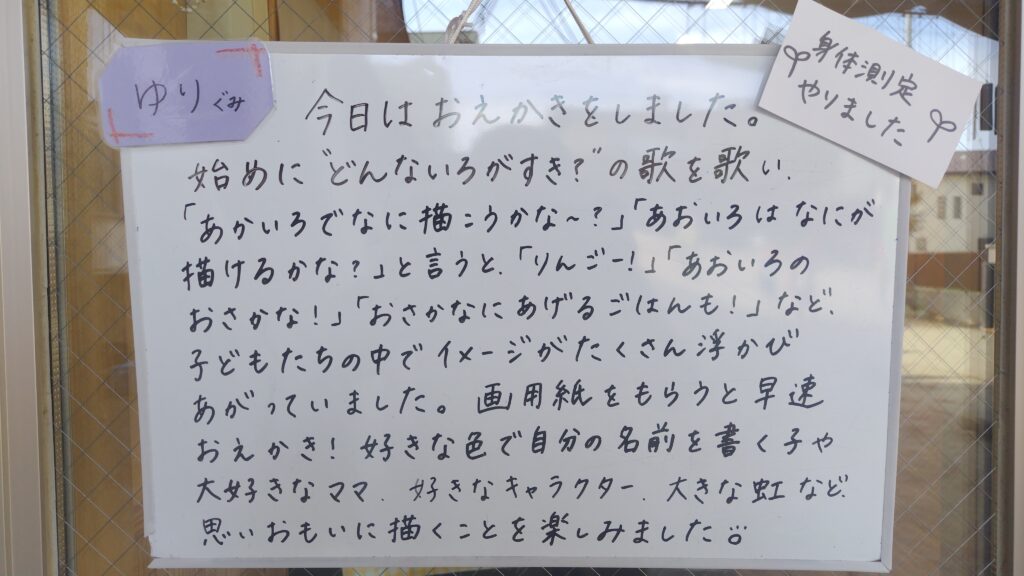 ゆりぐみ
身体測定
やりました
今日はおえかきをしました。
始めに"どんないろがすき?"の歌を歌い、
「あかいろでなに描こうかな～?」「あおいろはなにが
描けるかな?」と言うと、「りんごー!」「あおいろの
おさかな!」「おさかなにあげるごはんも!」など、
子どもたちの中でイメージがたくさん浮かび
あがっていました。画用紙をもらうと早速
おえかき!好きな色で自分の名前を書く子や
大好きなママ、好きなキャラクター、大きな虹など、
思いおもいに描くことを楽しみました